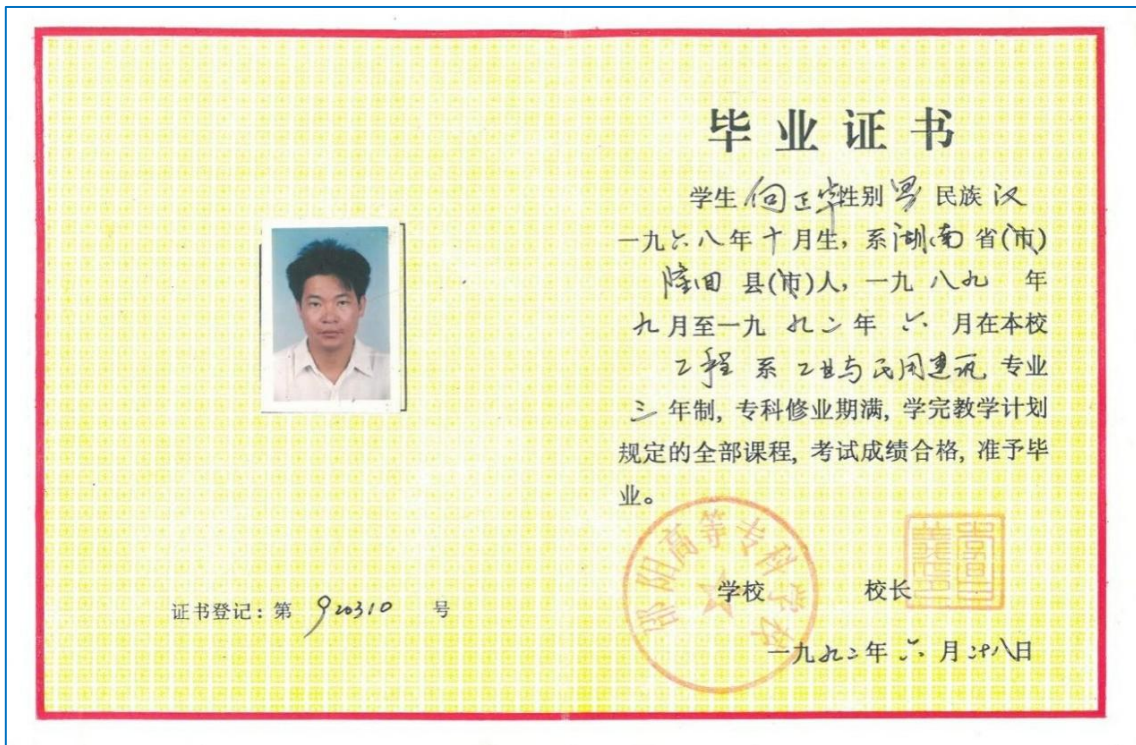 毕业证书
学生 向正华 性别 男 民族 汉
一九六八年十月生, 系湖南省(市)
隆回 县(市)人, 一九八九 年
九月至一九九二年 六 月在本校
工程 系 工业与民用建筑 专业
三年制, 专科修业期满, 学完教学计划
规定的全部课程, 考试成绩合格, 准予毕
业。
邵阳高等专科学校
学校 校长
一九九二年六月廿八日
证书登记:第 920310 号